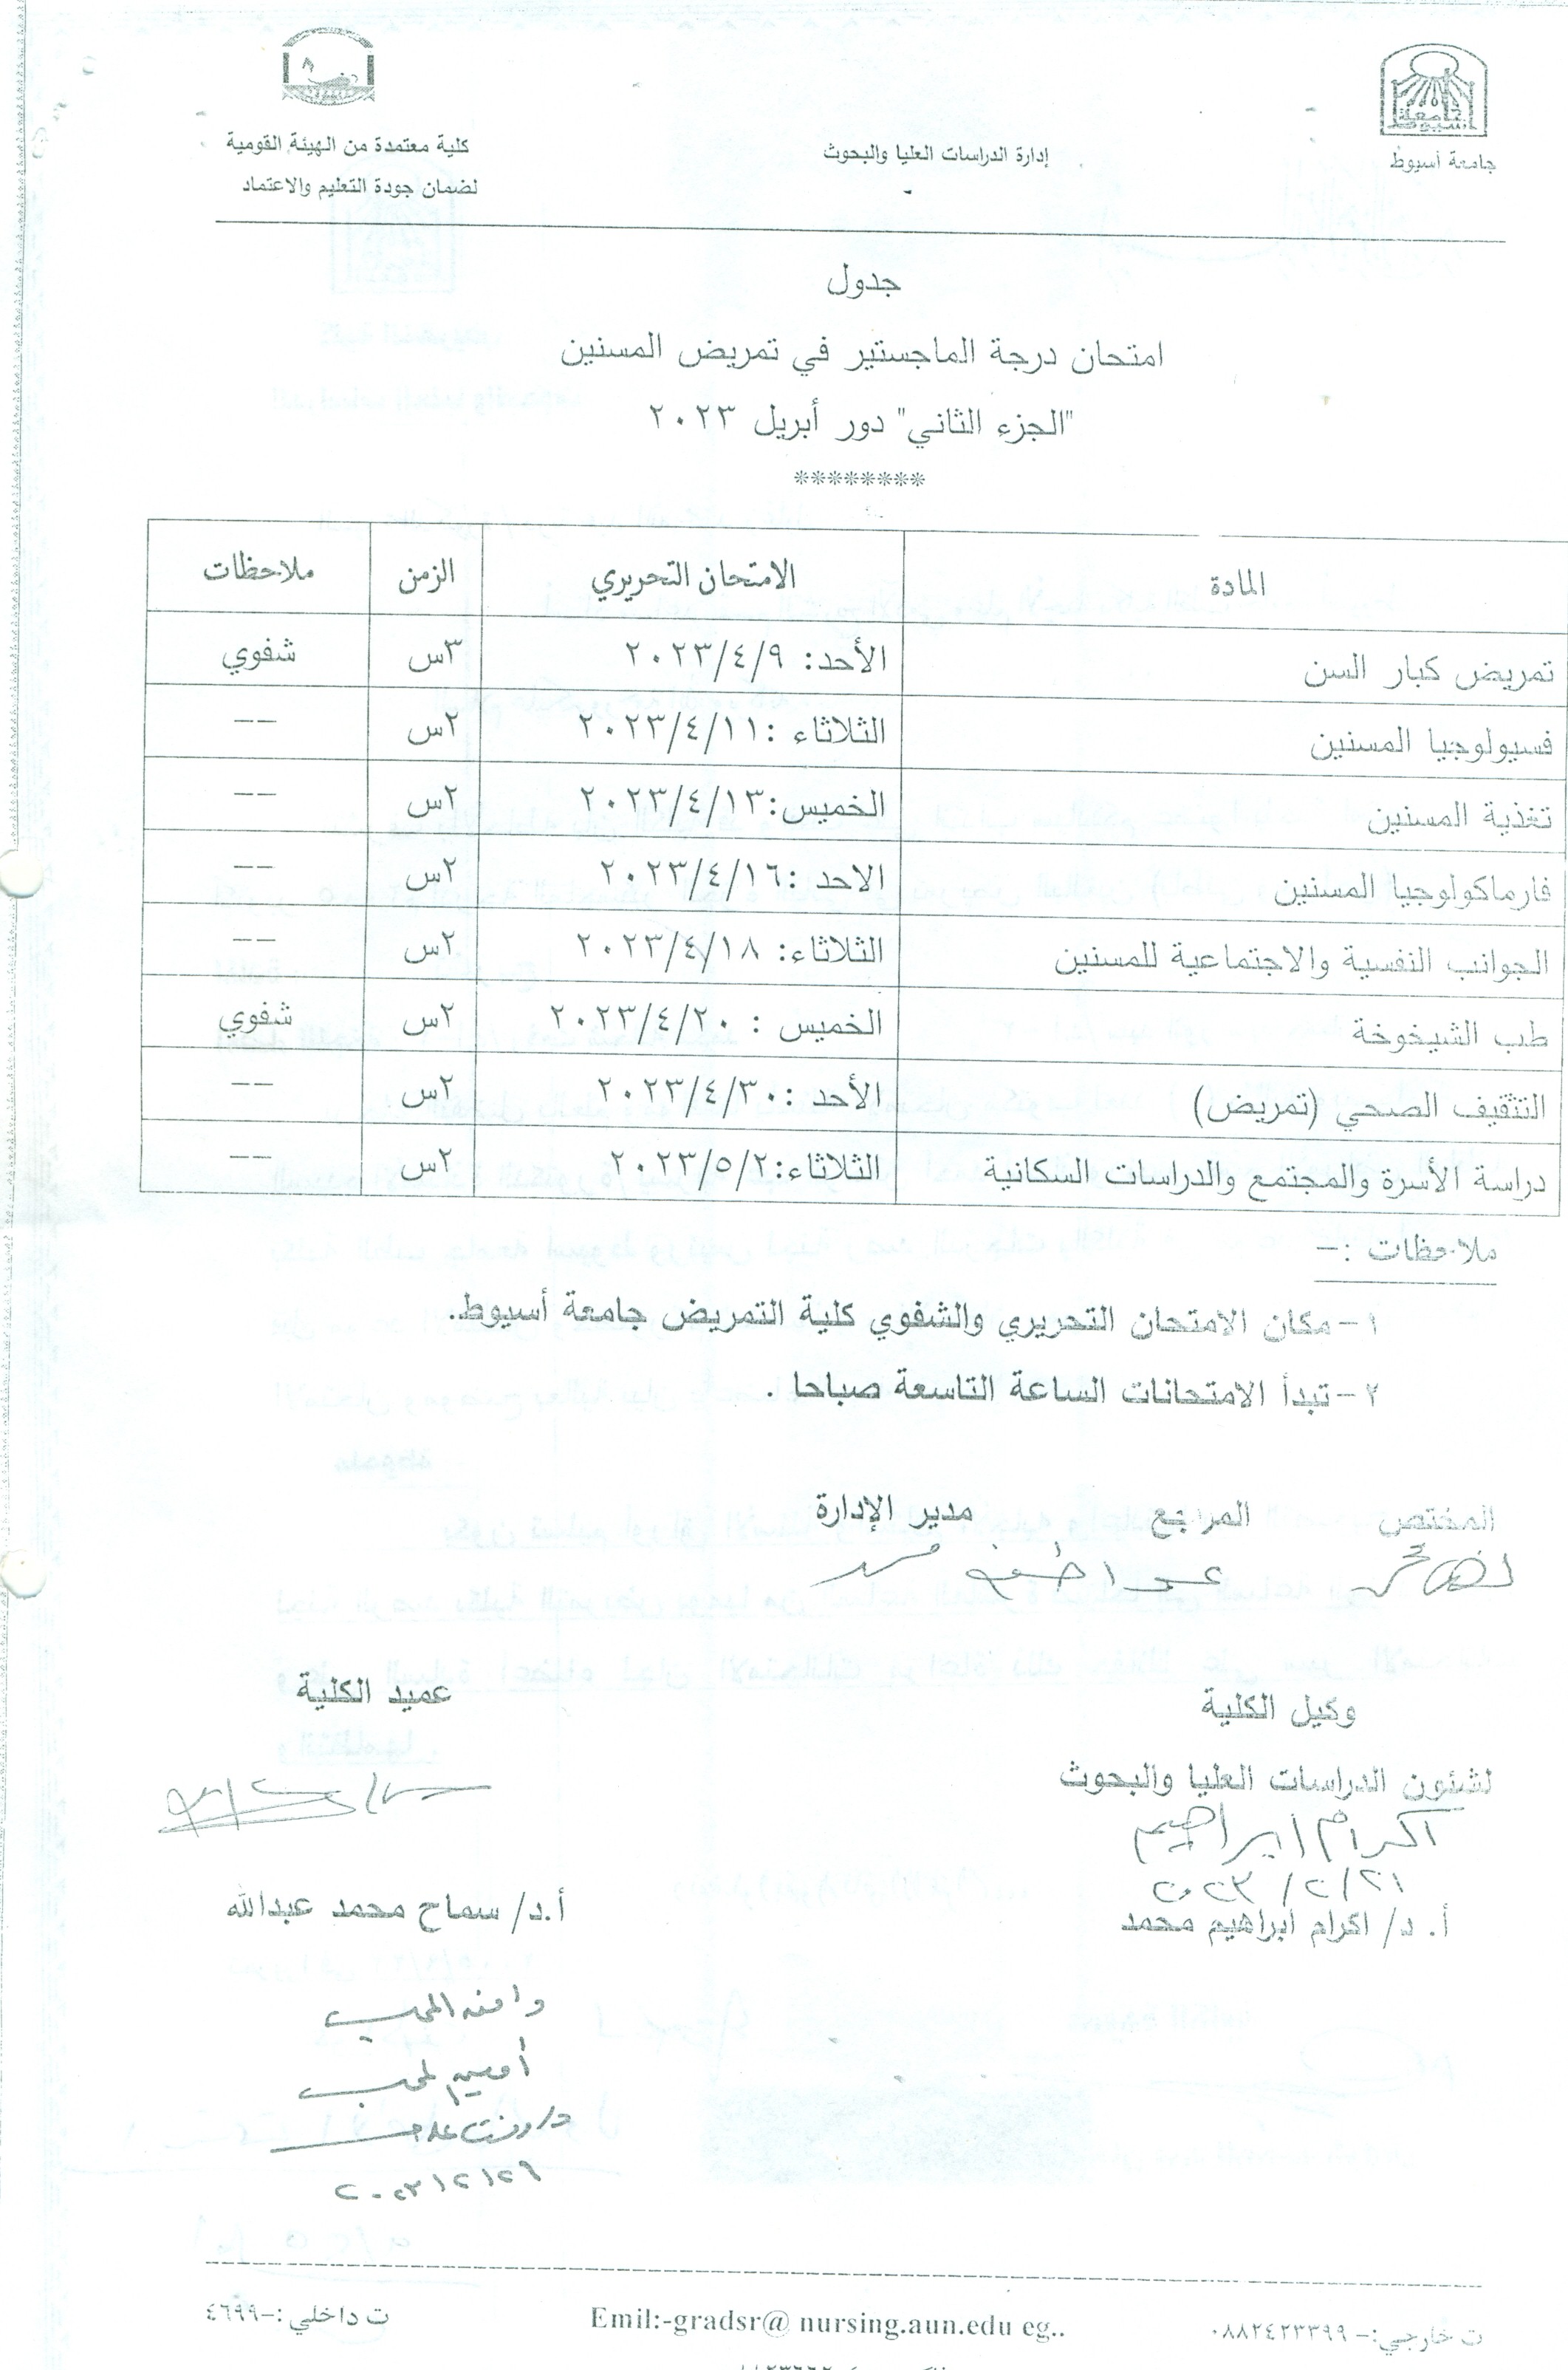 جامعة أسيوط
إدارة الدراسات العليا والبحوث
كلية معتمدة من الهيئة القومية
لضمان جودة التعليم والاعتماد
جدول
امتحان درجة الماجستير في تمريض المسنين
"الجزء الثاني" دور أبريل ٢٠٢٣
********
المادة الامتحان التحريري الزمن ملاحظات
تمريض كبار السن الأحد: ٢٠٢٣/٤/٩ ٣س شفوي
فسيولوجيا المسنين الثلاثاء :٢٠٢٣/٤/١١ ٢س --
تغذية المسنين الخميس:٢٠٢٣/٤/١٣ ٢س --
فارماكولوجيا المسنين الاحد :٢٠٢٣/٤/١٦ ٢س --
الجوانب النفسية والاجتماعية للمسنين الثلاثاء: ٢٠٢٣/٤/١٨ ٢س --
طب الشيخوخة الخميس : ٢٠٢٣/٤/٢٠ ٢س شفوي
التثقيف الصحي (تمريض) الأحد :٢٠٢٣/٤/٣٠ ٢س --
دراسة الأسرة والمجتمع والدراسات السكانية الثلاثاء:٢٠٢٣/٥/٢ ٢س --
ملاحظات :-
١- مكان الامتحان التحريري والشفوي كلية التمريض جامعة أسيوط..
٢- تبدأ الامتحانات الساعة التاسعة صباحا .
المختص المراجع مدير الإدارة
وكيل الكلية
لشئون الدراسات العليا والبحوث
اكرام ابراهيم
٢٠٢٣/٢/٢١
أ. د/ اكرام ابراهيم محمد
عميد الكلية
أ.د/ سماح محمد عبدالله
ت خارجي:- ٠٨٨٢٤٢٣٣٩٩
Emil:-gradsr@ nursing.aun.edu eg..
ت داخلي:-٤٦٩٩